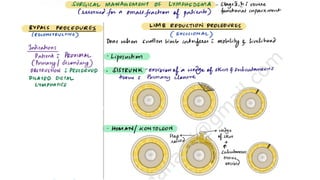 SURGICAL MANAGEMENT OF LYMPHOEDEMA - Stage 3, 4; severe
(reserved for a small fraction of patients) functional impairment
BYPASS PROCEDURES
(RECONSTRUCTIVE)
Indications
Patient c̄ PROXIMAL
(Primary / Secondary)
OBSTRUCTION c̄ PRESERVED
DILATED DISTAL
LYMPHATICS
LIMB REDUCTION PROCEDURES
(EXCISIONAL)
Done when swollen limb interferes c̄ mobility & livelihood
- Liposuction
- SISTRUNK - excision of a wedge of skin & subcutaneous
tissue c̄ Primary closure
- HOMAN / KONTOLEON
Flap raised
wedge
of skin
+
subcutaneous
tissue
excised
gmail.com